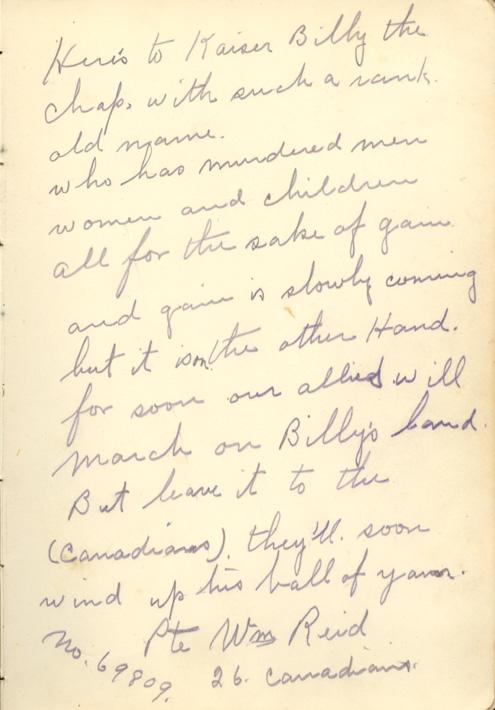 Here's to Kaiser Billy the
chap. with such a rank.
old name.
who has murdered men
women and children
all for the sake of gain
and gain is slowly coming
but it is on the other Hand.
for soon our allied will
March on Billy's land.
But leave it to the
(Canadians). they'll. soon
wind up his ball of yarn.
Pte Wm Reid
No. 69809. 26. Canadians.